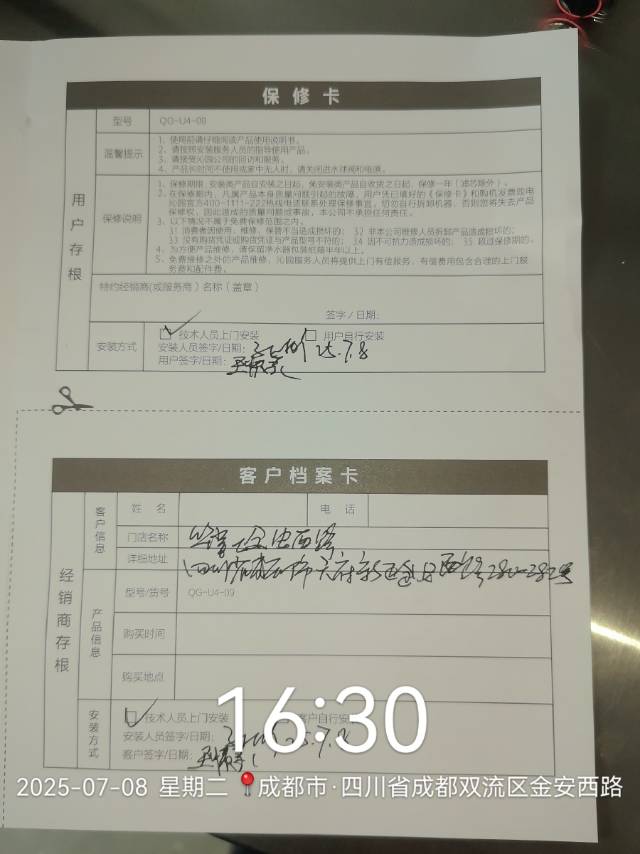 保修卡
用户存根
型号 QG-U4-09
温馨提示
1、使用前请仔细阅读产品使用说明书。
2、请按照安装服务人员的指导使用产品。
3、请接受沁园公司的回访和服务。
4、产品长时间不使用或家中无人时，请关闭进水球阀和电源。
保修说明
1、保修期限：安装类产品自安装之日起，免安装类产品自收货之日起，保修一年（滤芯除外）。
2、在保修期内，凡属产品本身质量问题引起的故障，用户凭已填好的《保修卡》和购机发票致电
沁园官方400-1111-222热线电话联系处理保修事宜。切勿自行拆卸机器，否则您将失去产品
保修权，因此造成的质量问题或事故，本公司不承担任何责任。
3、以下情况不属于免费保修范围之内。
3.1 消费者因使用、维修、保管不当造成损坏的； 3.2 非本公司维修人员拆卸产品造成损坏的；
3.3 没有购货凭证或购货凭证与产品型号不符的； 3.4 因不可抗力造成损坏的； 3.5 超过保修期的。
4、为方便产品维修，请保留净水器包装纸箱半年以上。
5、免费维修之外的产品维修，沁园服务人员将提供上门有偿服务，有偿费用包含合理的上门服
务费和配件费。
特约经销商(或服务商）名称（盖章）
签字 / 日期：
安装方式
技术人员上门安装 用户自行安装
安装人员签字/日期： 25.7.8
用户签字/日期：
客户档案卡
经销商存根
客户信息
姓 名 电 话
门店名称
详细地址
产品信息
型号/货号 QG-U4-09
购买时间
购买地点
安装方式
技术人员上门安装 客户自行安
安装人员签字/日期：
客户签字/日期：
16:30
2025-07-08 星期二 成都市·四川省成都双流区金安西路